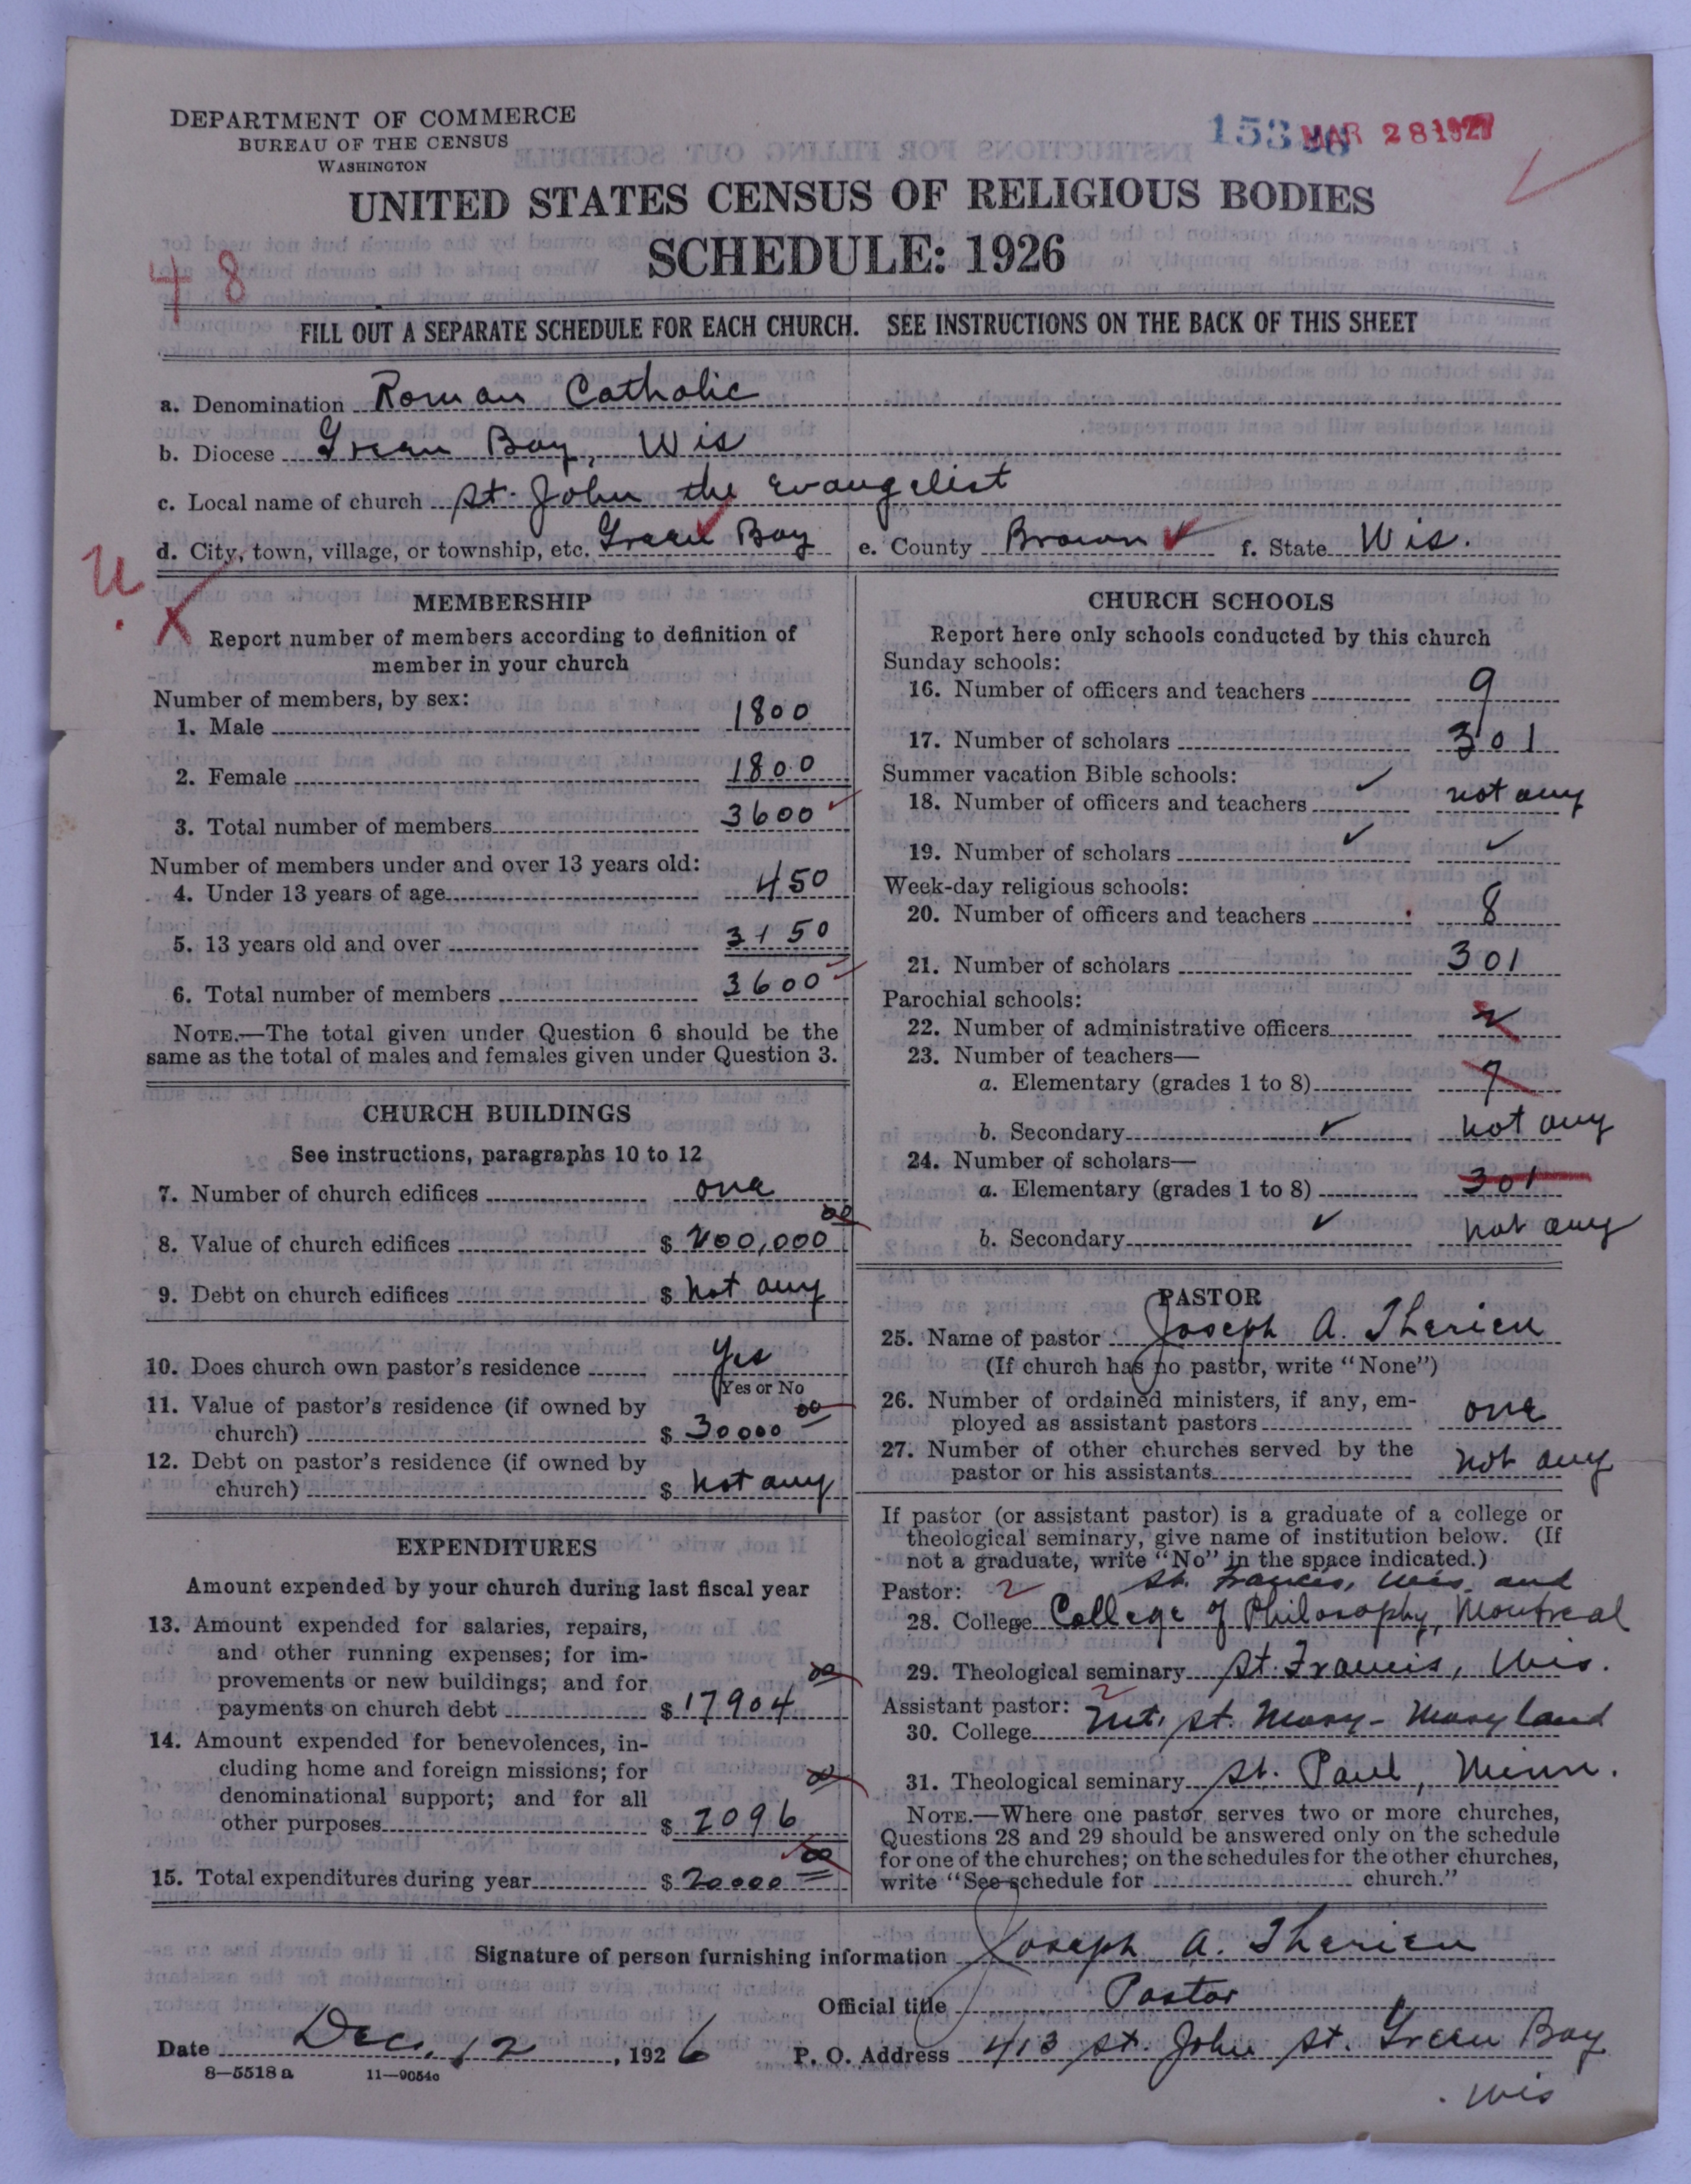 DEPARTMENT OF COMMERCE
BUREAU OF THE CENSUS
WASHINGTON
MAR 28 1927
UNITED STATES CENSUS OF RELIGIOUS BODIES
SCHEDULE: 1926
48
FILL OUT A SEPARATE SCHEDULE FOR EACH CHURCH. SEE INSTRUCTIONS ON THE BACK OF THIS SHEET
a. Denomination Roman Catholic
b. Diocese Green Bay, Wis
c. Local name of church St. John the Evangelist
d. City, town, village, or township, etc. Green Bay e. County Brown f. State Wis.
U.
X
MEMBERSHIP
Report number of members according to definition of
member in your church
Number of members, by sex:
1. Male 1800
2. Female 1800
3. Total number of members 3600
Number of members under and over 13 years old:
4. Under 13 years of age 450
5. 13 years old and over 3150
6. Total number of members 3600
NOTE.—The total given under Question 6 should be the
same as the total of males and females given under Question 3.
CHURCH BUILDINGS
See instructions, paragraphs 10 to 12
7. Number of church edifices one
8. Value of church edifices $ 200,000 00
9. Debt on church edifices $ not any
10. Does church own pastor's residence Yes
Yes or No
11. Value of pastor's residence (if owned by
church) $ 30000 00
12. Debt on pastor's residence (if owned by
church) $ not any
EXPENDITURES
Amount expended by your church during last fiscal year
13. Amount expended for salaries, repairs,
and other running expenses; for im-
provements or new buildings; and for
payments on church debt $ 17904 00
14. Amount expended for benevolences, in-
cluding home and foreign missions; for
denominational support; and for all
other purposes $ 2096 00
15. Total expenditures during year $ 20000 00
CHURCH SCHOOLS
Report here only schools conducted by this church
Sunday schools:
16. Number of officers and teachers 9
17. Number of scholars 301
Summer vacation Bible schools:
18. Number of officers and teachers not any
19. Number of scholars
Week-day religious schools:
20. Number of officers and teachers 8
21. Number of scholars 301
Parochial schools:
22. Number of administrative officers 2
23. Number of teachers—
a. Elementary (grades 1 to 8) 7
b. Secondary not any
24. Number of scholars—
a. Elementary (grades 1 to 8) 301
b. Secondary not any
PASTOR
25. Name of pastor Joseph A. Therien
(If church has no pastor, write "None")
26. Number of ordained ministers, if any, em-
ployed as assistant pastors one
27. Number of other churches served by the
pastor or his assistants not any
If pastor (or assistant pastor) is a graduate of a college or
theological seminary, give name of institution below. (If
not a graduate, write "No" in the space indicated.)
Pastor: 2 St. Francis, Wis. and
28. College College of Philosophy, Montreal
29. Theological seminary St. Francis, Wis.
Assistant pastor: 2
30. College Mt. St. Mary - Maryland
31. Theological seminary St. Paul, Minn.
NOTE.—Where one pastor serves two or more churches,
Questions 28 and 29 should be answered only on the schedule
for one of the churches; on the schedules for the other churches,
write "See schedule for church."
Signature of person furnishing information Joseph A. Therien
Official title Pastor
Date Dec. 12, 1926 P. O. Address 413 St. John St. Green Bay
Wis
8—5518a 11—9054c